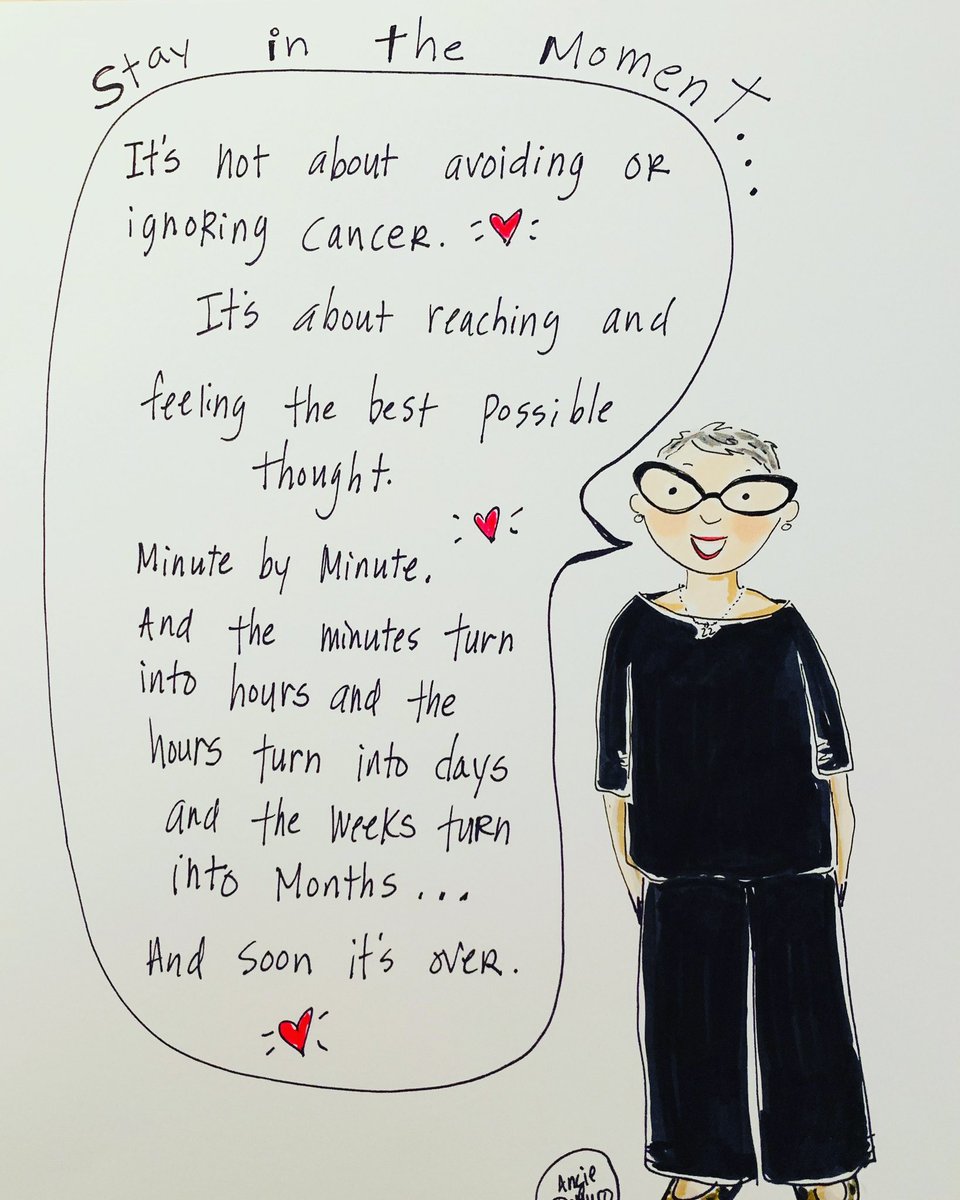 Stay in the Moment...
It's not about avoiding or
ignoring cancer.
It's about reaching and
feeling the best possible
thought.
Minute by Minute.
And the minutes turn
into hours and the
hours turn into days
and the weeks turn
into Months...
And soon it's over.
Angie